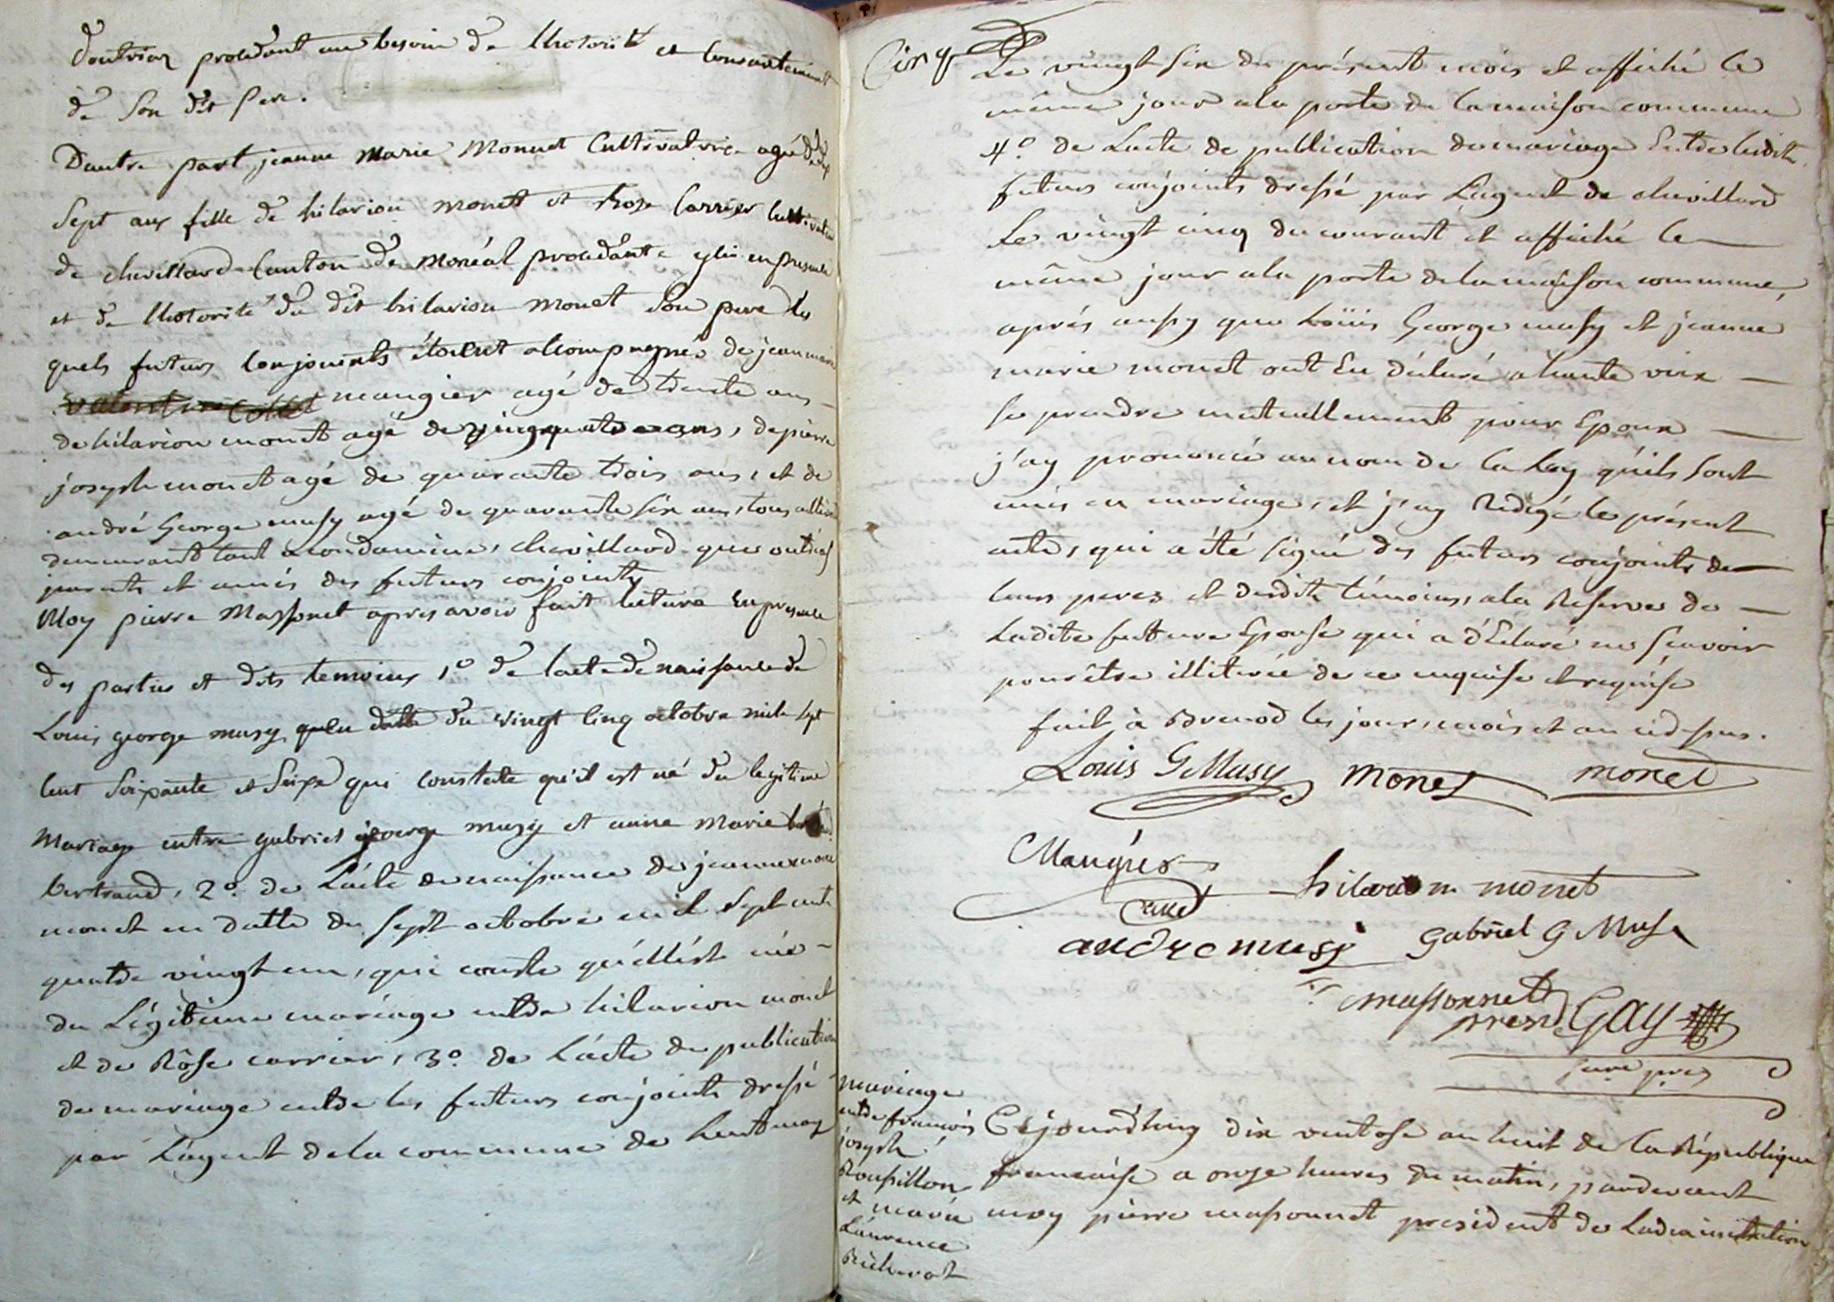 d'outriaz procedant au besoin de l'hotorité et Consentement
de Son dit Pere.
Dautre part jeanne Marie Monnet Cultivatrice agé de dix
Sept ans fille de hilarion monet et Rose Carrier Cultivateur
de chevillard Canton de Monréal procedante en presence
et de l'hotorité du dit hilarion monet Son pere les
quels futurs Conjoints étoient accompagnés de jean marie
mangier agé de trente ans
de hilarion monet agé de ans, de pierre
joseph monet agé de quarante trois ans, et de
andré George musy agé de quarante six ans, tous
demeurant tant a condamine, chevillard que outriaz
parents et amis des futurs conjoints
Moy pierre Massonnet apres avoir fait lecture En presence
des parties et dits temoins 1.o de lacte de naissance de
Louis george musy en datte du vingt Cinq octobre mile Sept
Cent Soixante et Seize qui Constate qu'il est né du legitime
Mariage entre gabriel george musy et anne Marie
bertrand, 2.o de L'acte de naissance de jeanne marie
monet en datte du sept octobre mil sept cent
quatre vingt un, qui conste qu'elle est née
du Légitime mariage entre hilarion monet
et de Rôse carrier, 3.o de L'acte de publication
de mariage entre les futurs conjoints dressé
par L'agent de la commune de
Cinq
Le vingt six du présent mois et affiché le
même jour a la porte de la maison commune
4.o de Lacte de publication de mariage Entre lesdits
futurs conjoints dressé par L'agent de chevillard
Le vingt cinq du courant et affiché le
même jour a la porte de la maison commune,
aprés aussy que Loüis George musy et jeanne
marie monet ont Eu déclaré a haute voix
se prendre mutuellement pour Epoux
j'ay prononcé au nom de la Loy qu'ils sont
unis en mariage, et j'ay Rédigé le présent
acte, qui a été signé des futurs conjoints de
leurs peres et desdits témoins, a la Reserve de
Ladite future Epouse qui a d'Eclaré ne scavoir
pour être illiterée de ce enquise et requise
fait à Brenod les jour, mois et an cidessus.
Louis G Musy monet monet
Mangier
hilarion monet
andre musy gabriel G Musy
massonnet
presd. GAY
mariage
entre francois
joseph
Roussillon
et marie
Laurence
Cejourd'huy dix ventose an huit de la République
francaise a onze heures du matin, pardevant
moy pierre massonnet president de Ladministration